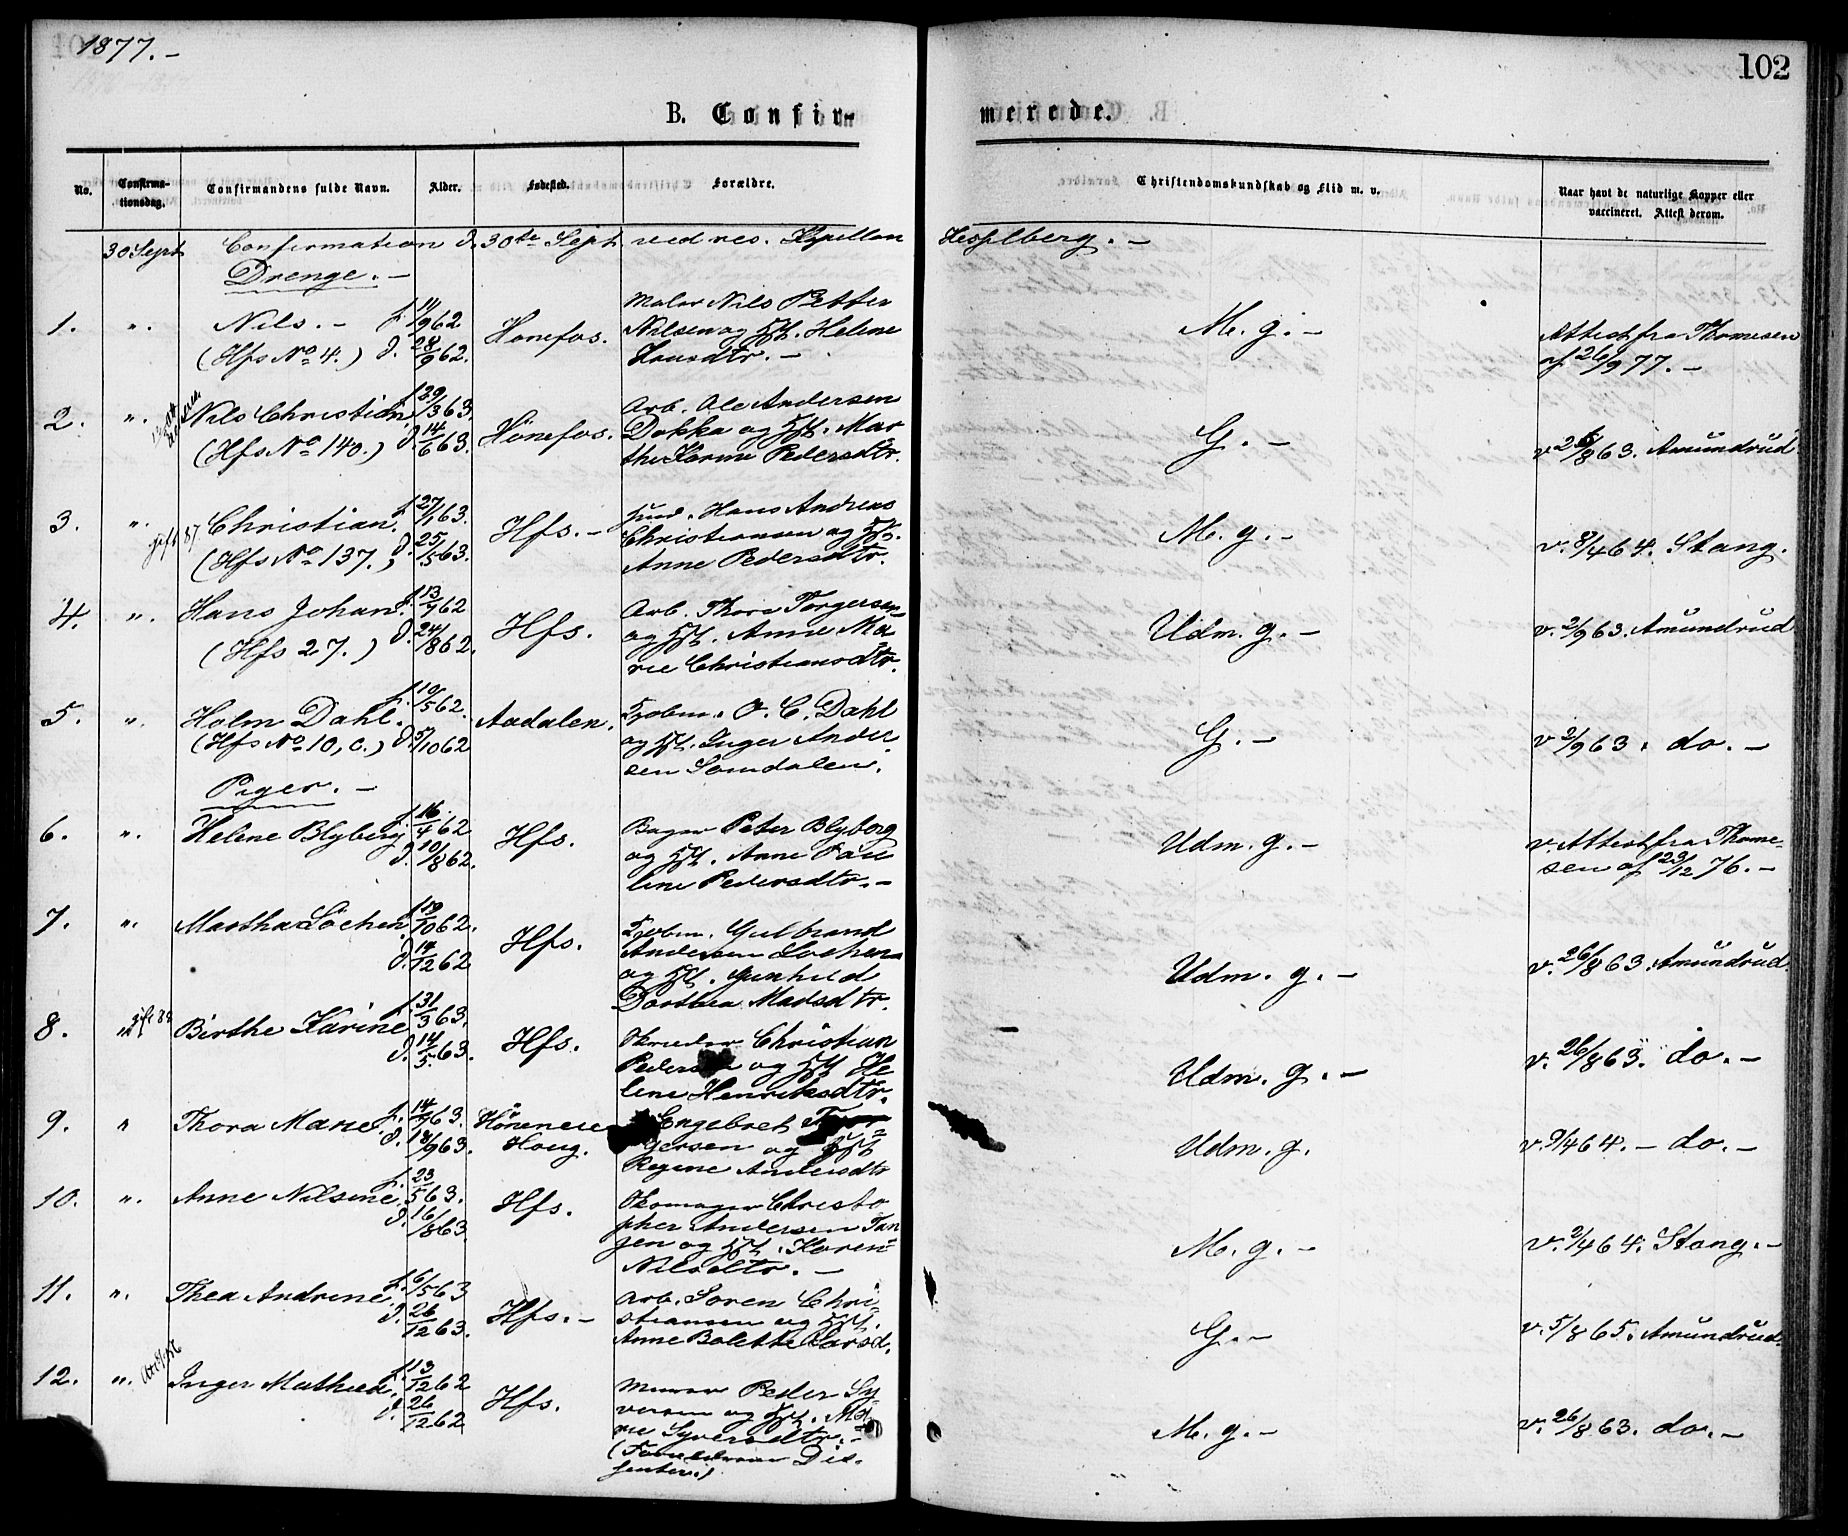 1877. –
102
B. Confir-
merede.
No.
Confirma-
tionsdag.
Confirmandens fulde Navn.
Alder.
Fødested.
Forældre.
Christendomskundskab og Flid m. v.
Naar havt de naturlige Kopper eller
vaccineret. Attest derom.
30 Sept Confirmation d. 30te Sept. ved res. Kapellan Hesselberg. –
Drenge. –
1. ". Nils. – f. 14/9 62 Hønefos. Maler Nils Petter M. g. –
(Hfs No 4.) d. 28/9 62. Nilsen og Hst. Helene Attest fra Thomesen
Hansdtr. – af 26/9 77. –
2. ". Nils Christian, f. 29/3 63 Hönefos. Arb. Ole Andersen G. –
(Hfs No 140.) d. 14/6 63. Dokka og Hst. Mar v. 26/8 63. Amundrud
the Karine Pedersdtr.
3. ". gift 87 Christian, f. 27/1 63. Hfs. – Hans Andreas M. g. –
(Hfs No 137.) d. 25/5 63. Christiansen og Hst. v. 8/4 64. Stang.
Anne Pedersdtr.
4. ". Hans Johan. f. 13/7 62 Hfs. Arb. Thore Torgersen Udm. g. – v. 2/9 63. Amundrud
(Hfs 27.) d. 24/8 62. og Hst. Anne Ma
rie Christiansdtr.
5. ". Holm Dahl. f. 10/5 62. Aadalen. Kjøbm. O. C. Dahl G. – v. 2/9 63. do. –
(Hfs No 10, c.) d. 5/10 62 og Hst. Inger Ander
sen Somdalen.
Piger. –
6. ". Helene Blyberg f. 16/4 62 Hfs. Bager Peter Blyberg Udm. g. – v. Attest fra Thome-
d. 10/8 62. og Hst. Anne Pau sen af 29/12 76. –
line Pedersdtr. –
7. ". Martha Löchen f. 19/10 62. Hfs. Kjøbm. Gulbrand Udm. g. – v. 26/8 63. Amundrud.
d. 14/12 62 Andersen Lochen
og Hst. Gunhild
Dorthea Madsdtr.
8. ". gift 83 Birthe Karine f. 31/3 63. Hfs. Skræder Christian Udm. g. – v. 26/8 63. do. –
d. 14/5 63. Pedersen og Hst. He
lene Henriksdtr.
9. " Thora Marie f. 14/7 63. Hönenese Engebret Tor- Udm. g. v. 9/4 64. – do. –
d. 18/9 63. Houg. gersen og Hst
Regine Andersdtr
10. ". Anne Nilsine f. 23/5 63. Hfs. Skomager Christo M. g. – v. 2/4 64. Stang. –
d. 16/8 63 pher Andersen Tan
gen og Hst. Karen
Nilsdtr. –
11. ". Thea Andrine f. 6/5 63 Hfs. – Arb. Soren Chri- G. – v. 5/8 65. Amundrud.
d. 26/12 63. stiansen og Hst.
Anne Bolette Larsd.
12. ". Inger Mathea. f. 13/12 62 Hfs. Murer Peder Sy- M. g. – v. 26/8 63. do. –
d. 26/12 62 versen og Hst. Ma
rie Syversdtr. –
(Forældrene Dis-
senter.)